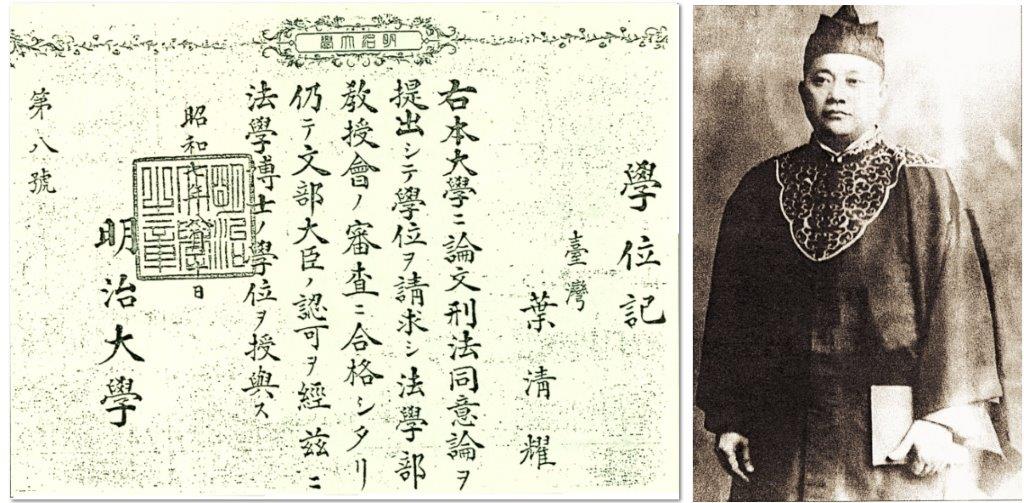 明治大學
學位記
臺灣
葉清耀
右本大學ニ論文刑法同意論ヲ
提出シテ學位ヲ請求シ法學部
教授會ノ審査ニ合格シタリ
仍テ文部大臣ノ認可ヲ經茲ニ
法學博士ノ學位ヲ授與ス
昭和七年日
明治大學
第八號